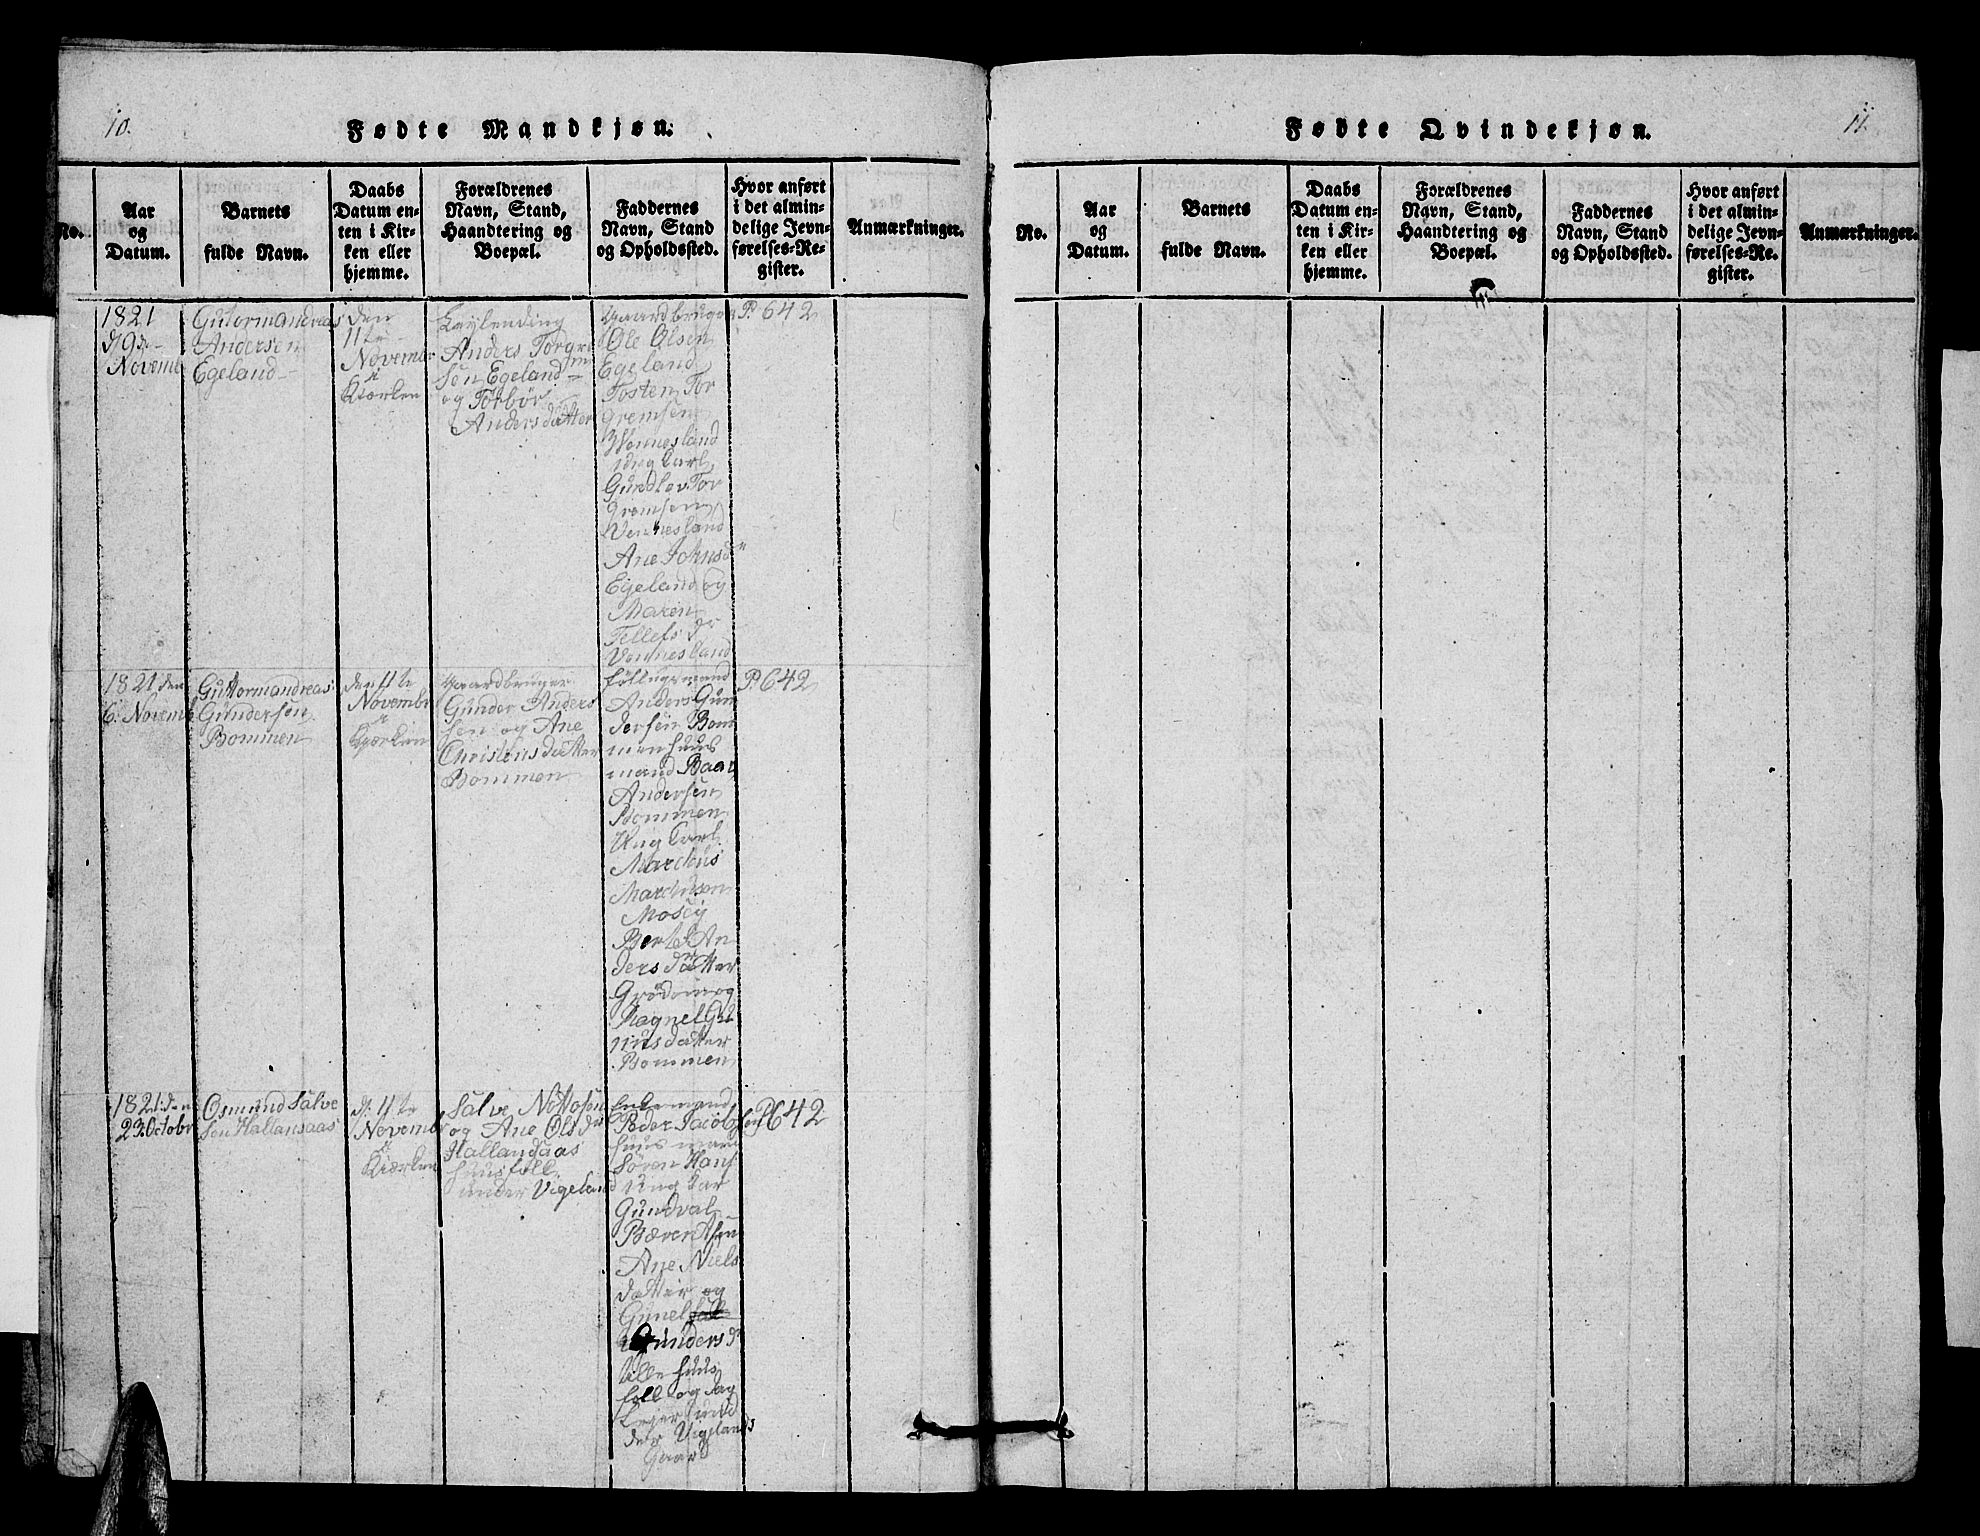 10.
Fødte Mandkjøn.
No.
Aar
og
Datum.
Barnets
fulde Navn.
Daabs
Datum en-
ten i Kir-
ken eller
hjemme.
Forældrenes
Navn, Stand,
Haandtering og
Boepæl.
Faddernes
Navn, Stand
og Opholdssted.
Hvor anført
i det almin-
delige Jevn-
førelses-Re-
gister.
Anmærkninger.
1821
Novemb
Gutormandreas
Andersen
Egeland
den
11te
Novembr
Kiærken
Leylending
Anders Torgrem
sen Egeland
og Torbør
Andersdatter
Gaardbruger
Ole Olsen
Egeland
Tosten Tor
gremsen
Wennesland
ung Carl
Gundlev Tor
gremsen
Vennesland
Ane Johnsdr
Egeland og
Maren
Tellefsdr
Vennesland
P. 642
1821 den
6. Novemb
Guttormandreas
Gundersen
Bommen
den 11te
Novembr
Kiærken
Gaardbruger
Gunder Anders
sen og Ane
Christensdatter
Bommen
föllugsmand
Anders Gun
dersen Bom
men huus
mand Baar
Andersen
Bommen
Ung Carl
Marchus
Marchusen
Mosey
Berte An
dersdatter
og
Ragnel
datter
Bommen
P. 642
1821: den
23. Octobr
Osmund Salve
sen Hallansaas
d: 11te
Novembr
Kiærken
Salve Nottosen
og Ane Olsdr
Hallandsaas
huusfoll
under Vigeland
Enkemand
Peder Jacobsen
huusmand
Søren Hans
Ung Kar
Gundval
Bævertsen
Ane Niels
datter og
Gunel
Gundersdr
alle huus
foll og dag
Lejer und
der Vigelands
Gaard
P 642
11.
Fødte Qvindekjøn.
No.
Aar
og
Datum.
Barnets
fulde Navn.
Daabs
Datum en-
ten i Kir-
ken eller
hjemme.
Forældrenes
Navn, Stand,
Haandtering og
Boepæl.
Faddernes
Navn, Stand
og Opholdssted.
Hvor anført
i det almin-
delige Jevn-
førelses-Re-
gister.
Anmærkninger.